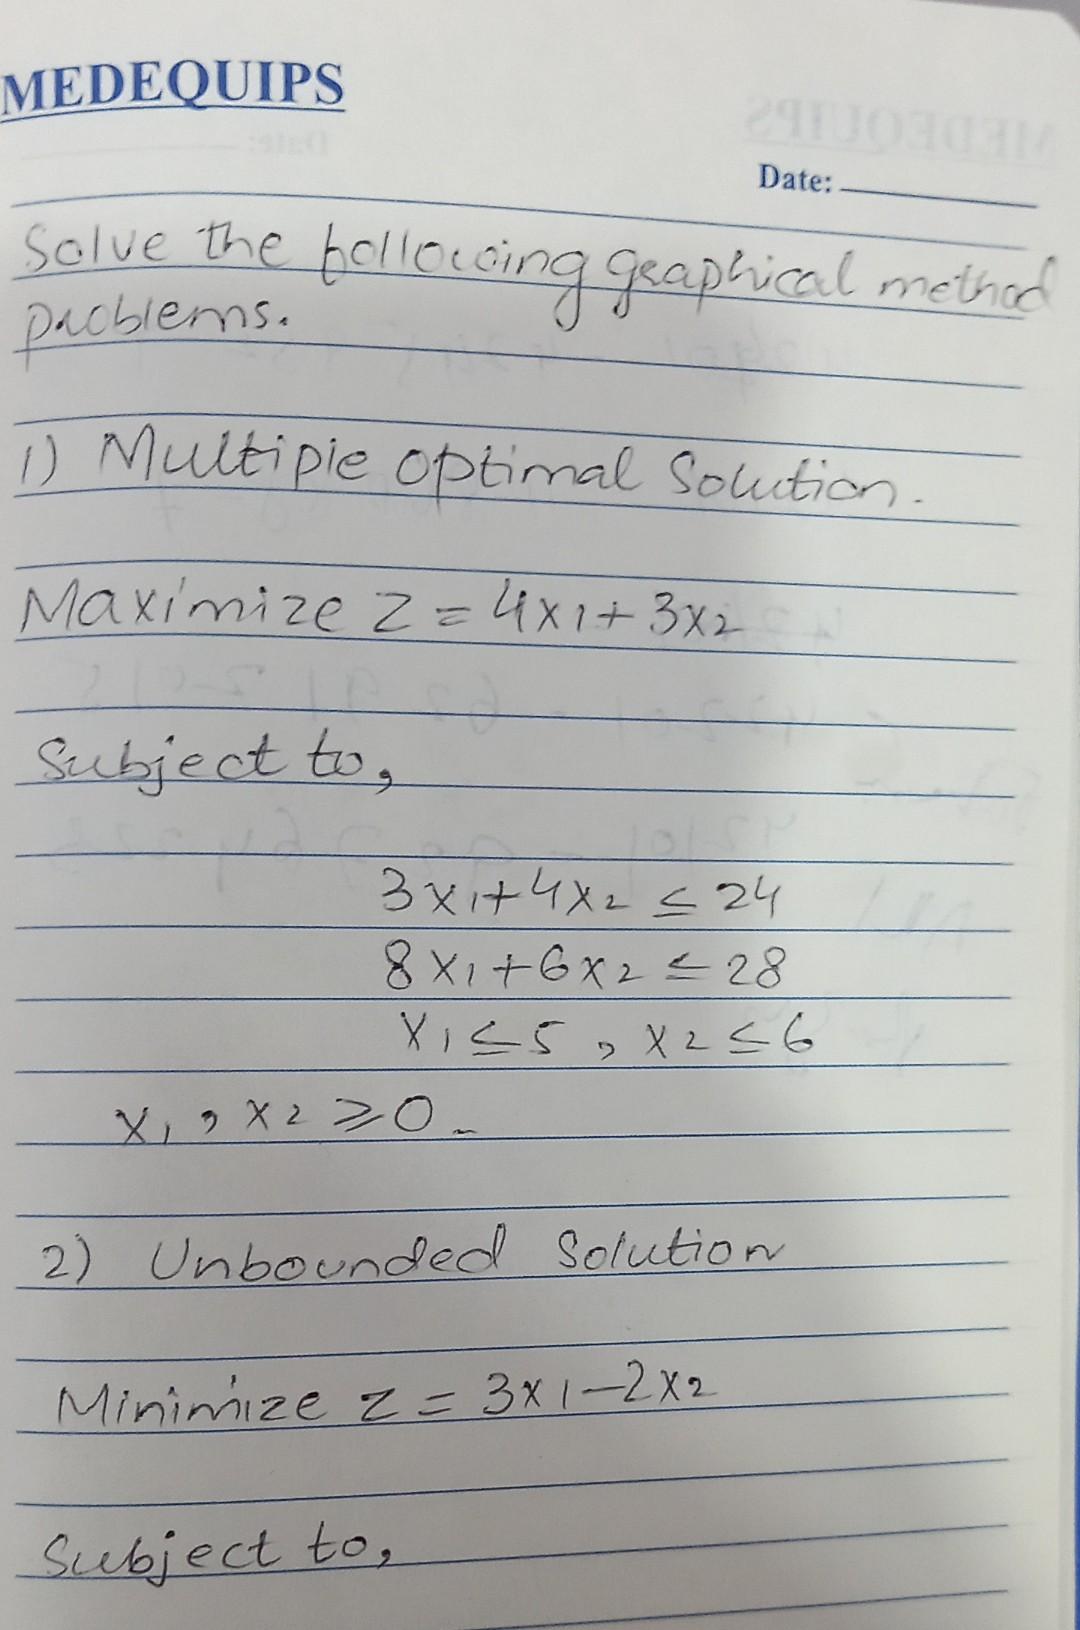 MEDEQUIPS
Date:
Solve the following graphical method
problems.
1) Multiple optimal Solution.
Maximize Z = 4x1 + 3x2
Subject to,
3x1 + 4x2 ≤ 24
8x1 + 6x2 ≤ 28
x1 ≤ 5, x2 ≤ 6
x1, x2 ≥ 0.
2) Unbounded Solution
Minimize z = 3x1 - 2x2
Subject to,